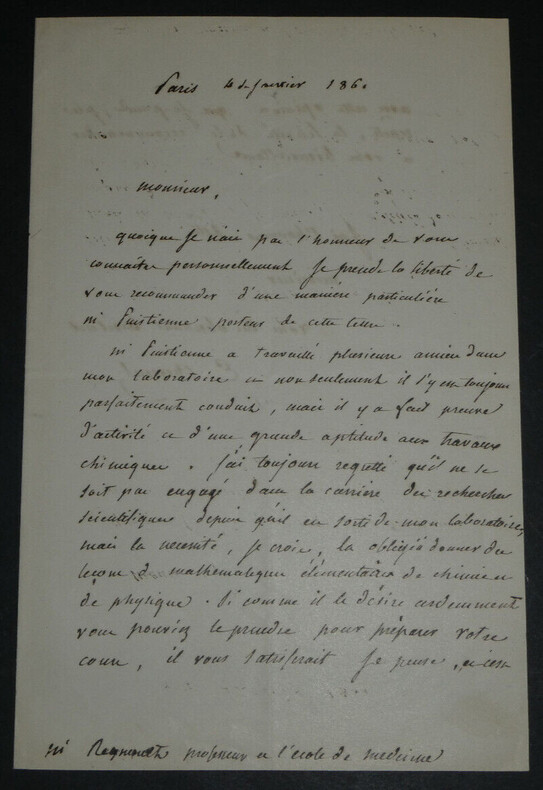 Paris 4 de janvier 186.
monsieur,
quoique je n'aie pas l'honneur de vous
connaitre personnellement je prends la liberté de
vous recommander d'une manière particulière
porteur de cette lettre.
a travaillé plusieurs années dans
mon laboratoire et non seulement il s'y est toujours
parfaitement conduit, mais il y a fait preuve
d'activité et d'une grande aptitude aux travaux
chimiques. j'ai toujours regretté qu'il ne se
soit pas engagé dans la carrière des recherches
scientifiques depuis qu'il est sorti de mon laboratoire,
mais la necessité, je crois, l'a obligé à donner des
leçons de mathématiques élémentaires de chimie et
de physique. Si comme il le désire ardemment
vous pouviez le prendre pour préparer votre
cours, il vous satisferait je pense, et c'est
professeur a l'école de medecine